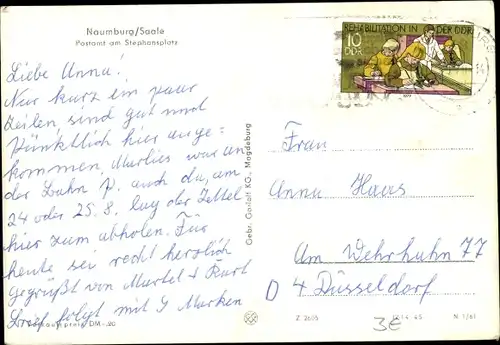 Naumburg/Saale
Postamt am Stephansplatz
Liebe Anna!
Nur kurz ein paar
Zeilen sind gut und
pünktlich hier ange=
kommen Marlies war an
der Bahn P. auch da, am
24 oder 25.8. lag der Zettel
hier zum abholen. Für
heute sei recht herzlich
gegrüßt von Martel + Kurt
Brief folgt mit 9 Marken
DM -,20
Gebr. Garloff KG., Magdeburg
REHABILITATION IN DER DDR
10
DDR
Frau
Anna Haas
Am Wehrhahn 77
D 4 Düsseldorf
Z 2605
45
N 1/61
3€